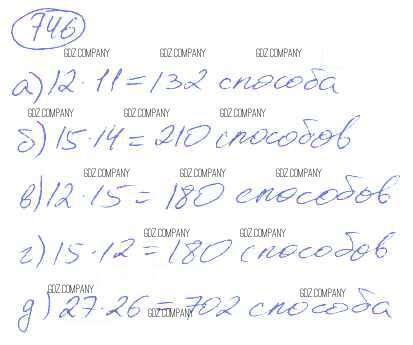 746
GDZ.COMPANY GDZ.COMPANY GDZ.COMPANY
а) 12 · 11 = 132 способа
GDZ.COMPANY GDZ.COMPANY GDZ.COMPANY
б) 15 · 14 = 210 способов
GDZ.COMPANY GDZ.COMPANY GDZ.COMPANY
в) 12 · 15 = 180 способов
GDZ.COMPANY GDZ.COMPANY
г) 15 · 12 = 180 способов
GDZ.COMPANY GDZ.COMPANY
д) 27 · 26 = 702 способа
GDZ.COMPANY